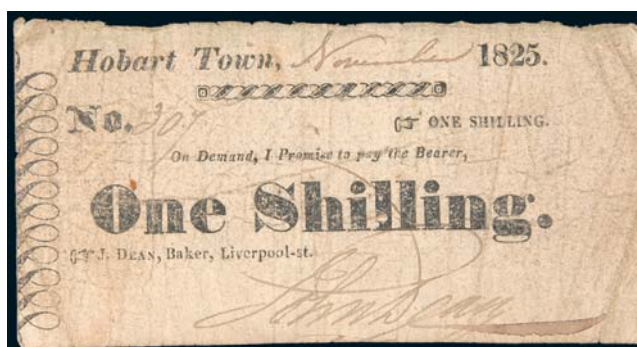 Hobart Town, November 1825.
No. 307 ☞ ONE SHILLING.
On Demand, I Promise to pay the Bearer,
One Shilling.
☞ J. DEAN, Baker, Liverpool-st.
John Dean